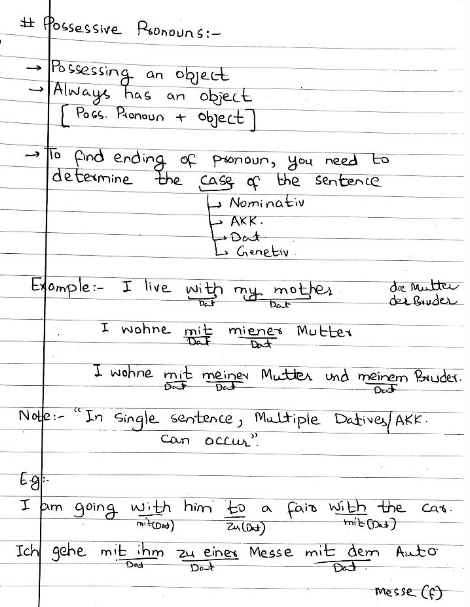 # Possessive Pronouns:-
→ Possessing an object
→ Always has an object
[Poss. Pronoun + object]
→ To find ending of pronoun, you need to
determine the case of the sentence
→ Nominativ
→ AKK.
→ Dat
→ Genetiv
Example:- I live with my mother. die Mutter
Dat Dat der Bruder
I wohne mit miener Mutter
Dat Dat
I wohne mit meiner Mutter und meinem Bruder.
Dat Dat Dat
Note:- "In single sentence, Multiple Datives/AKK.
can occur".
Eg:-
I am going with him to a fair with the car.
mit(Dat) Zu(Dat) mit(Dat)
Ich gehe mit ihm zu einer Messe mit dem Auto
Dat Dat Dat
Messe (f)